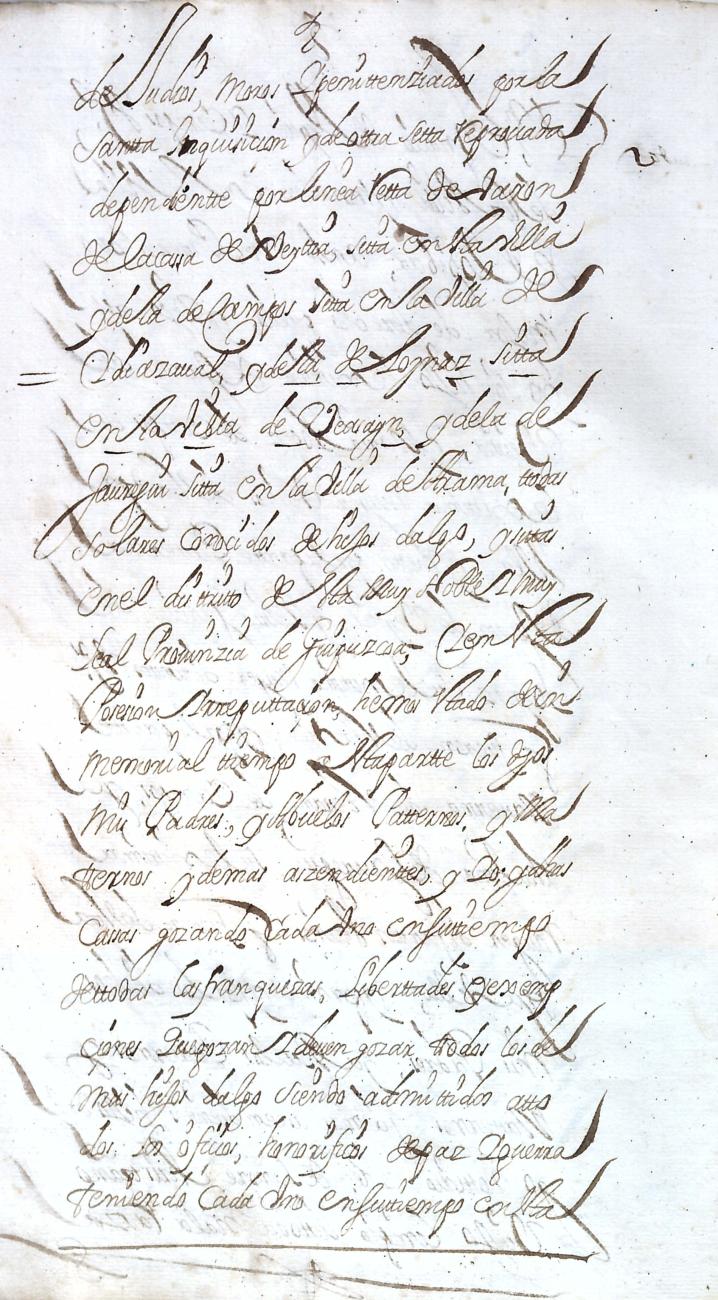 de Judios, moros I penittenziados por la
santta Inquisicion y de ottra setta reprouada
dependientte por linea retta de Varon
de la cassa de sitta en la Villa
y de la de Campos sitta en la Villa de
Ydiazaual, y de la de Loynaz sitta
en la Villa de Veaayn, y de la de
Jauregui sitta en la Villa de ttodas
solares conocidos de hijos dalgo, y sittas
en el distritto de esta Muy Noble I muy
Leal Prouinzia de Guipuzcoa, Y en esta
Posesion I rreputtacion, hemos estado de in
memorial ttiempo a esta partte los dhos
mis Padres, y Abuelos Patternos, y Ma
tternos y demas aszendienttes, y Yo, y dhas
Cassas gozando Cada Vno en su ttiempo
de ttodas las franquezas, Liberttades y exemp
ciones Que gozan I deuen gozar ttodos los de
mas hijos dalgo siendo admittidos a tto
dos los oficios, honorificos de paz I guerra
tteniendo Cada Vno en su ttiempo en esta